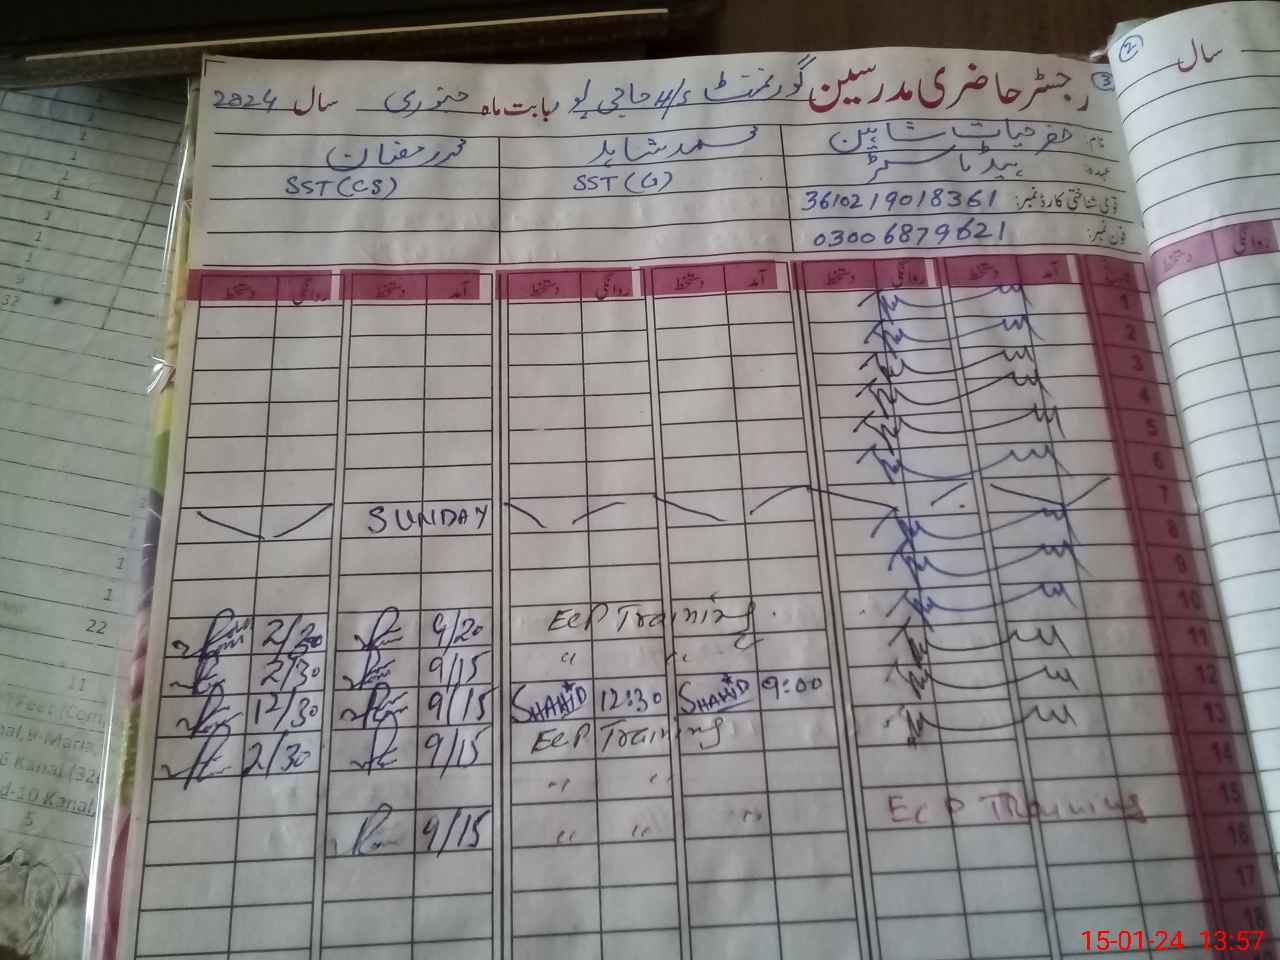 رجسٹر حاضری مدرسین گورنمنٹ H/S حاجی پور بابت ماہ جنوری سال 2024
3
2
سال
نام: خضر حیات شاہین
محمد شاہد
محمد رمضان
عہدہ: ہیڈ ماسٹر
SST (G)
SST (CS)
قومی شناختی کارڈ نمبر: 3610219018361
فون نمبر: 03006879621
آمد دستخط روانگی دستخط آمد دستخط روانگی دستخط آمد دستخط روانگی دستخط
روانگی دستخط
1
2
3
4
5
6
7
SUNDAY
8
9
10
2/20 9/20 ECP Training 11
2/30 9/15 " " 12
12/30 9/15 SHAHID 12:30 SHAHID 9:00 13
2/30 9/15 ECP Training 14
" " 15
9/15 " " " ECP Training 16
17
18
1
1
1
1
1
1
9
32
1
1
22
11
5
15-01-24 13:57